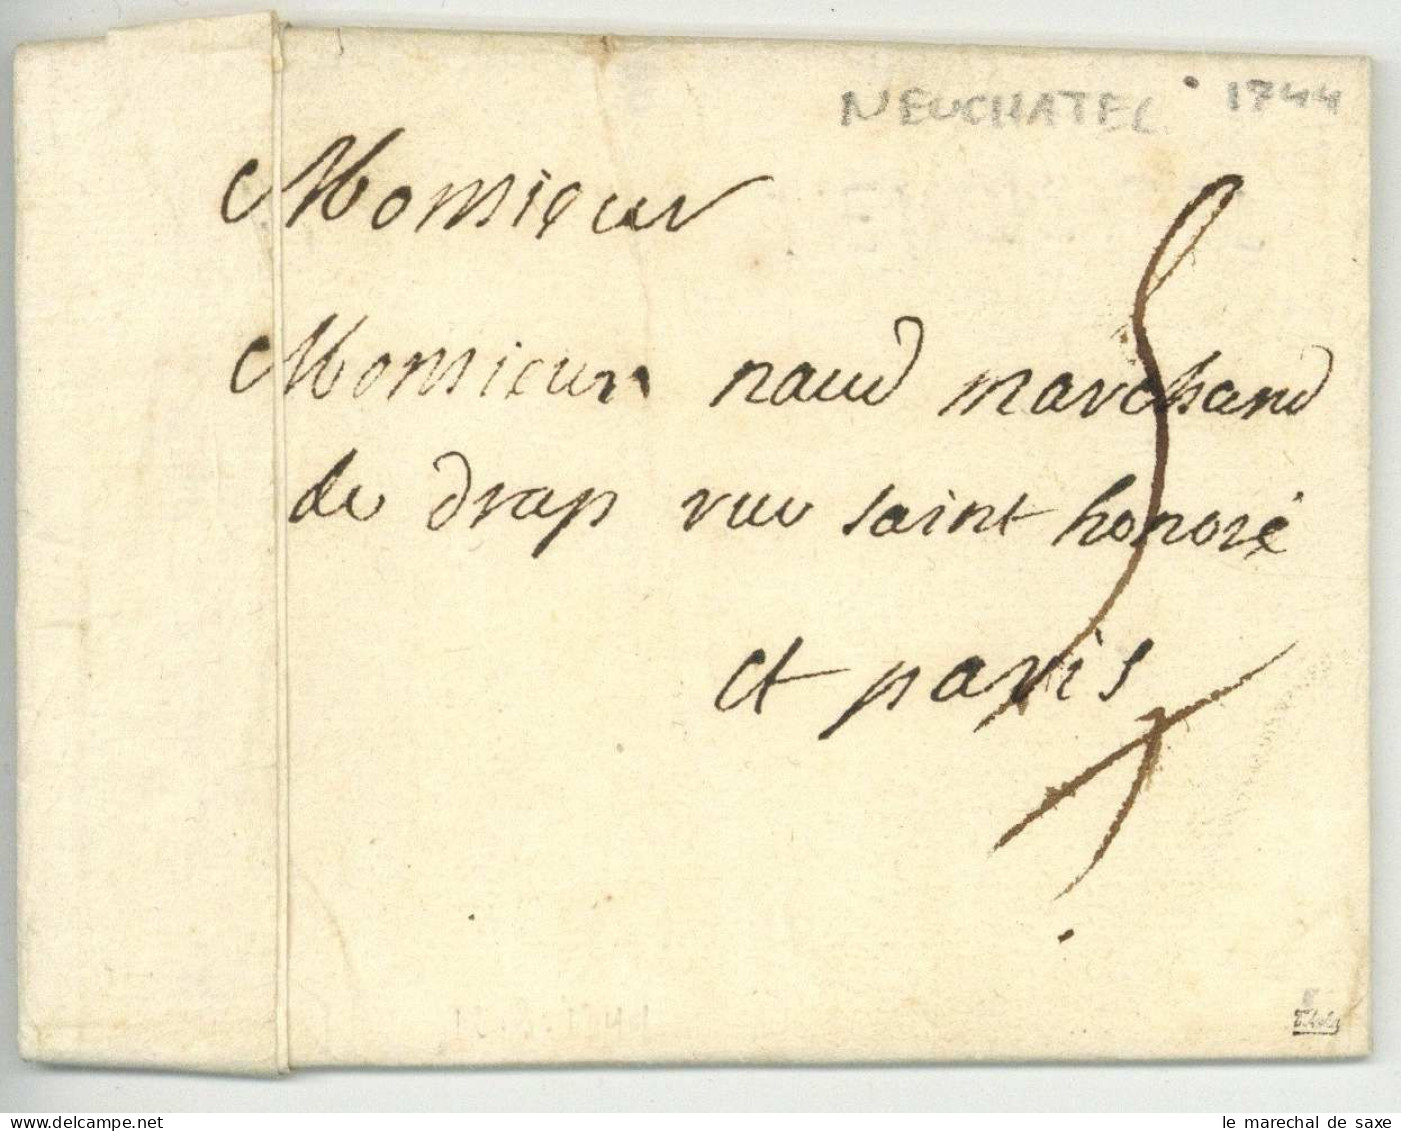 NEUCHATEL 1744
Monsieur
Monsieur naud marchand
de drap rue saint honoré
et paris
le marechal de saxe